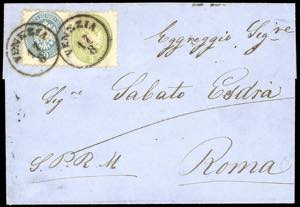 VENEZIA
17
8
VENEZIA
17
8
Eggreggio Sigre
Sigre Sabato Esdrà
S.P.R.M
Roma